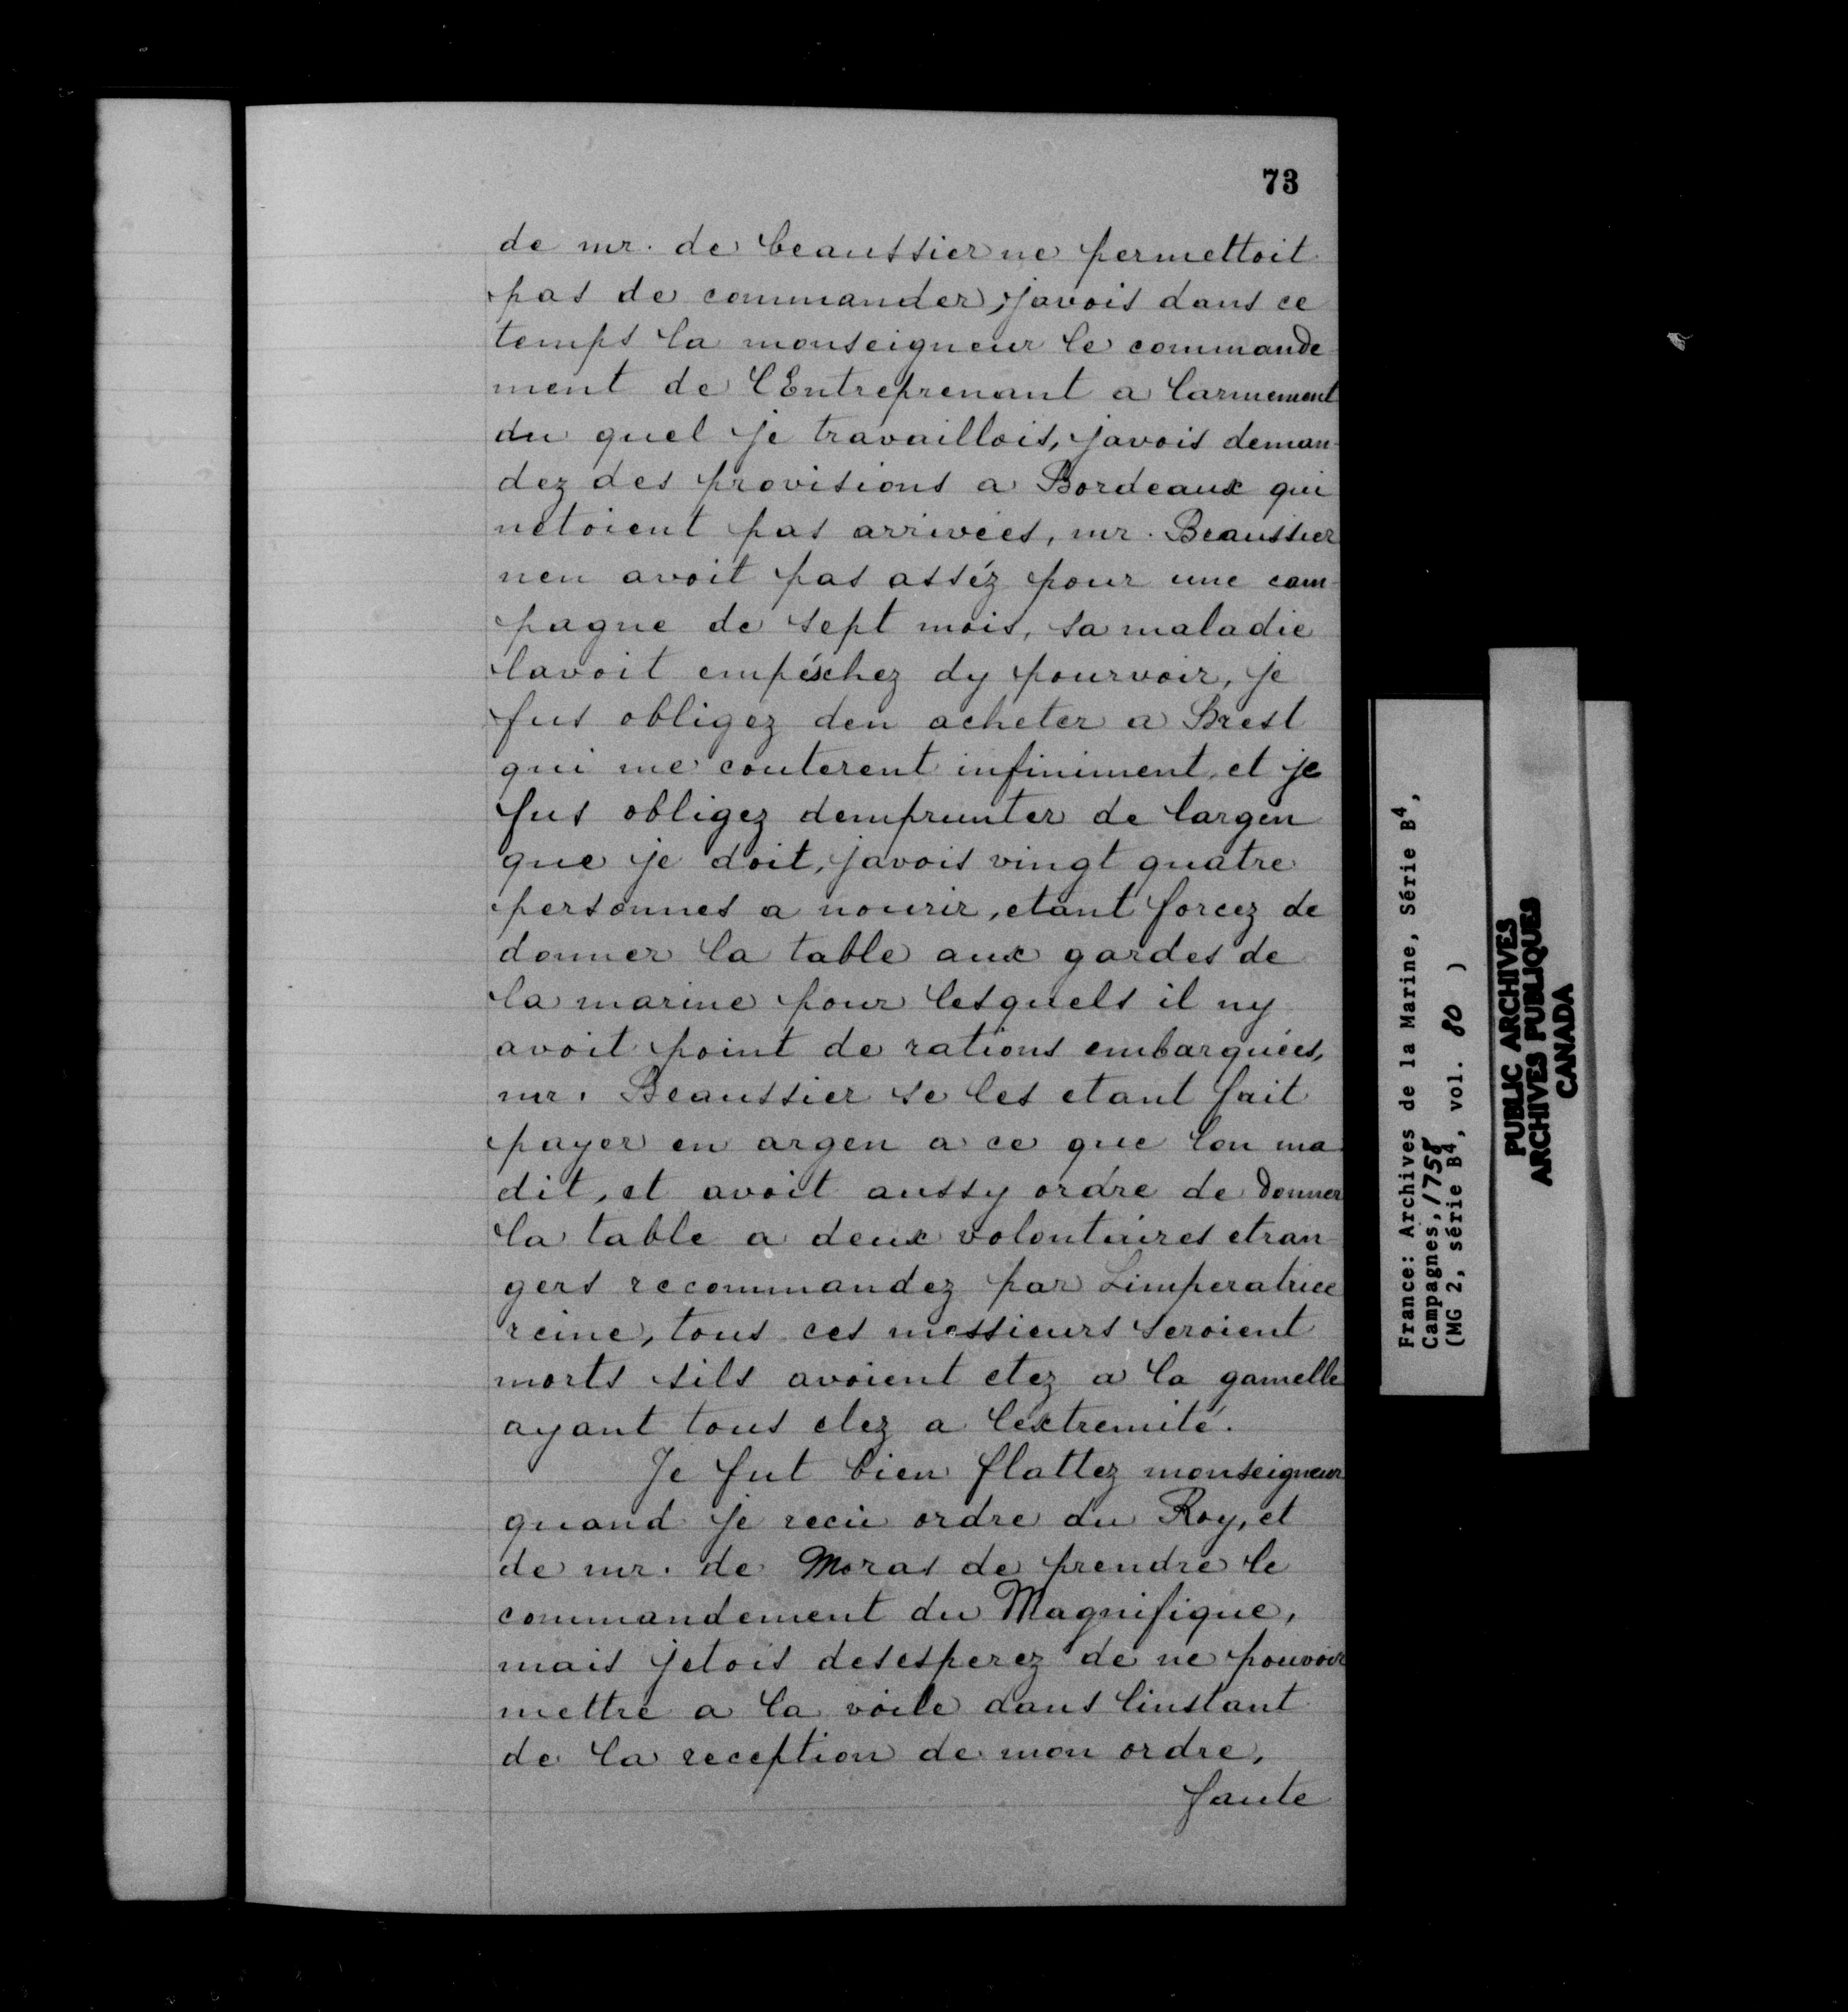 73
de mr. de beaussier ne permettoit
pas de commander, javois dans ce
temps la monseigneur le commande
ment de lEntreprenant a larmement
du quel je travaillois, javois deman-
dez des provisions a Bordeaux qui
nétoient pas arrivées, mr. Beaussier
nen avoit pas asséz pour une cam-
pagne de sept mois, sa maladie
lavoit empéschez dy pourvoir, je
fus obligez den acheter a Brest
qui me couterent infiniment, et je
fus obligez demprunter de largen
que je doit, javois vingt quatre
personnes a nourir, etant forcez de
donner la table aux gardes de
la marine pour lesquels il ny
avoit point de rations embarquées,
mr. Beaussier se les etant fait
payer en argen a ce que lon ma
dit, et avoit aussy ordre de donner
la table a deux volontaires etran
gers recommandez par Limperatrice
reine, tous ces messieurs seroient
morts sils avoient etez a la gamelle
ayant tous etez a lextremité.
Je fut bien flattez monseigneur
quand je recu ordre du Roy, et
de mr. de Moras de prendre le
commandement du Magnifique,
mais jetois desesperez de ne pouvoir
mettre a la voile dans linstant
de la reception de mon ordre,
faute
France: Archives de la Marine, Série B4,
Campagnes, 1758
(MG 2, série B4, vol. 80 )
PUBLIC ARCHIVES
ARCHIVES PUBLIQUES
CANADA